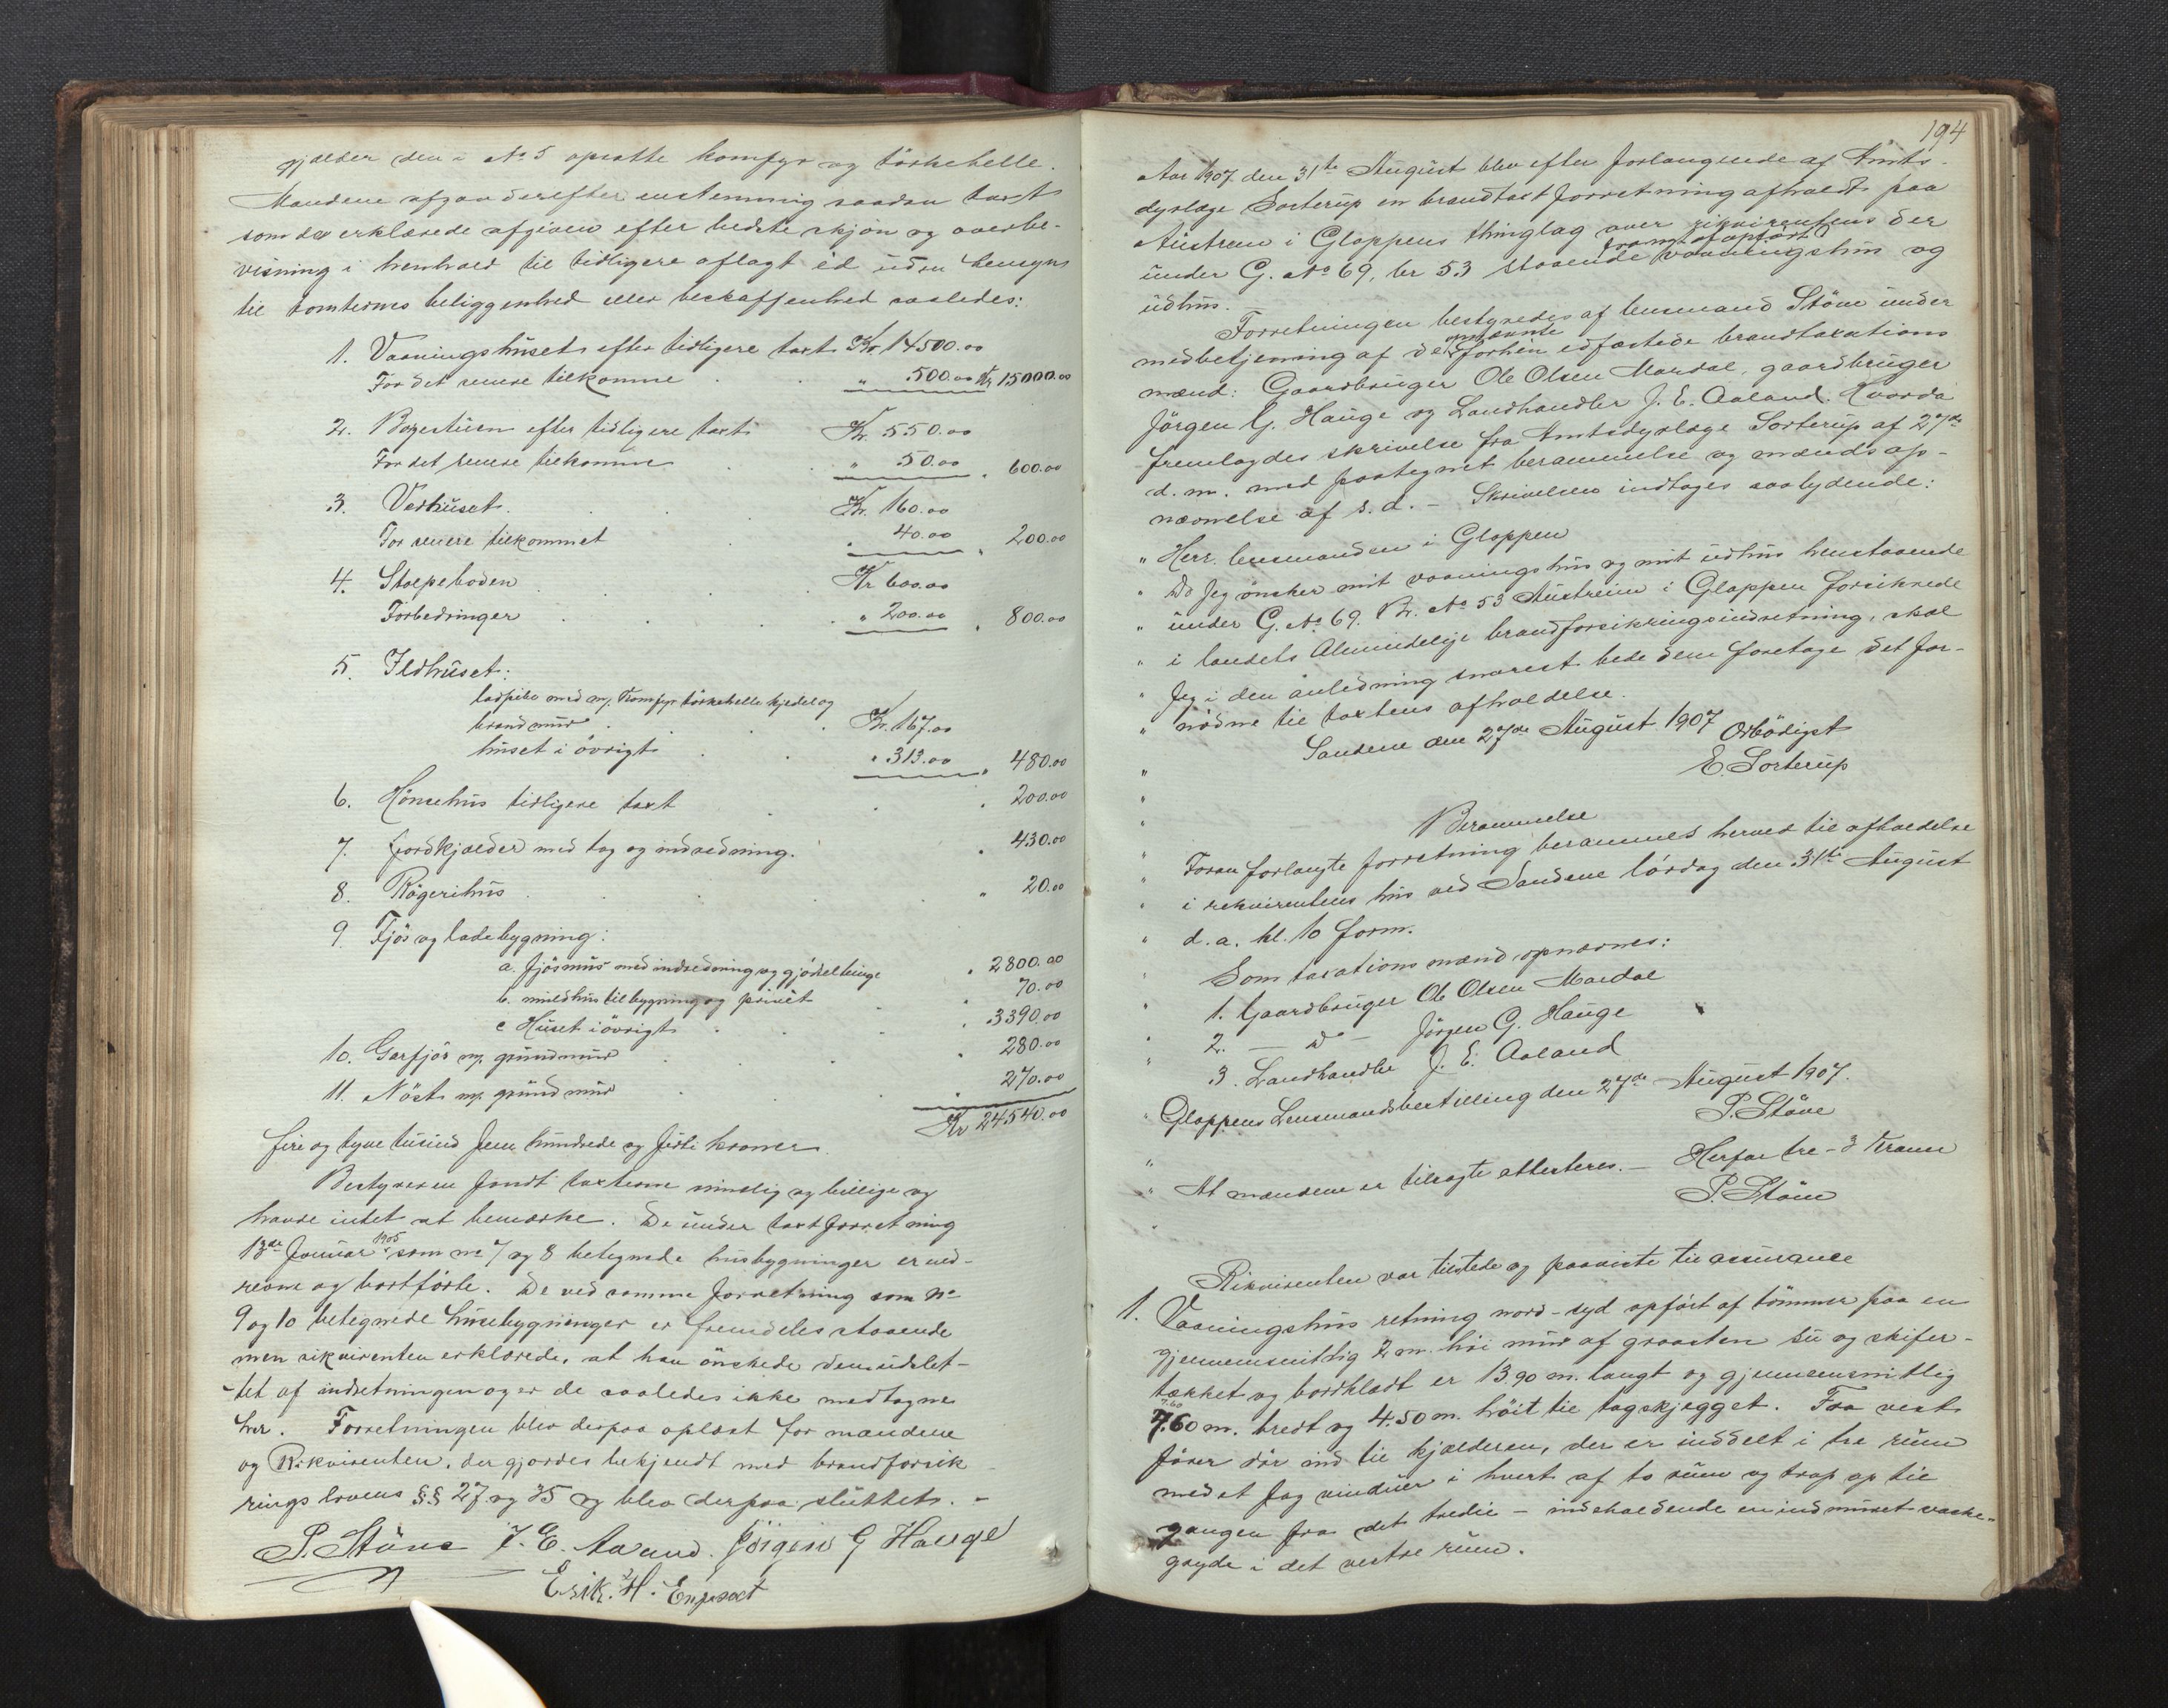 gjælder den i No 5 opsatte komfyr og törkehelle.
Mændene afgav derefter enstemmig saadan taxt
som de erklærede afgiven efter bedste skjøn og overbe-
visning i henhold til tidligere aflagt ed uden hensyn
til tomternes beliggenhed eller beskaffenhed saaledes:
1. Vaaningshuset efter tidligere taxt Kr. 14500.00
For det senere tilkomne " 500.00 Kr 15000.00
2. Borgestuen efter tidligere taxt Kr. 550.00
For det senere tilkomne " 50.00 " 600.00
3. Vedhuset Kr. 160.00
For senere tilkommet " 40.00 " 200.00
4. Stolpeboden Kr 600.00
Forbedringer " 200.00 " 800.00
5. Ildhuset:
ladpibe med m/ Komfyr törkehelle kjedel og
brandmur Kr. 167.00
huset i övrigt " 313.00 " 480.00
6. Hönsehus tidligere taxt " 200.00
7. Jordkjælder med tag og indredning. " 430.00
8. Rögerihus " 20.00
9. Fjös og ladebygning:
a. fjösmur med indredning og gjödselbinge " 2800.00
b. muldhus tilbygning og privet " 70.00
c Huset i övrigt " 3390.00
10. Garfjös m/ grundmur " 280.00
11. Nöst m/ grundmur " 270.00
Kr 24540.00
fire og tyve tusind fem hundrede og firti kroner.
Bestyreren fandt taxterne rimelig og billige og
havde intet at bemærke. De under taxtforretning
13de Januar 1905 som no 7 og 8 betegnede husbygninger er ned-
revne og bortförte. De ved samme forretning som no
9 og 10 betegnede husebygninger er fremdeles staaende
men rikvirenten erklærede, at han önskede dem udslet-
tet af indretningen og er de saaledes ikke medtagne
her. Forretningen blev derpaa oplæst for mændene
og Rikvirenten, der gjordes bekjendt med brandforsik
ringslovens §§ 27 og 35 og blev derpaa sluttet. -
P. Stöve J. E. Aaland. Jörgen G Hauge
Erik. H.
194
Aar 1907 den 31te August blev efter forlangende af Amts-
dyrlæge Sorterup en brandtaxtforretning afholdt paa
Austrem i Gloppens thinglag over rikvirentens der
under G. No 69, br 53 staaende vaaningshus og
udhus.
Forretningen bestyredes af lensmand Stöve under
medbetjening af de opnævnte forhen edfæstede brandtaxations
mænd: Gaardbruger Ole Olsen Mardal, gaardbruger
Jörgen G. Hauge og Landhandler J. E. Aaland. Hvorda
fremlagdes skrivelse fra Amtsdyrlæge Sorterup af 27de
d. m. med paategnet berammelse og mændsop-
nævnelse af s. d. – Skrivelsen indtages saalydende:
" Herr. lensmanden i Gloppen
" Da Jeg önsker mit vaaningshus og mit udhus henstaaende
" under G. No 69. Br. No 53 Austreim i Gloppen forsikrede
" i landets Almindelige brandforsikringsindretning, skal
" Jeg i den anledning snarest bede dem foretage det for-
" nødne til taxtens afholdelse.
Sandene den 27de August 1907 Ærbödigst
" E. Sorterup
"
" Berammelse
" Foran forlangte forretning berammes herved til afholdelse
" i rekvirentens hus ved Sandene lördag den 31te August
" d. a. kl. 10 form.
" Som taxationsmænd opnævnes:
" 1. Gaardbruger Ole Olsen Mardal
" 2. – do – Jörgen G. Hauge
" 3. Landhandler J. E. Aaland
" Gloppens Lensmandsbestilling den 27de August 1907.
P. Stöve
"
" At mændene er tilsagte attesteres. – Herfor tre - 3 Kroner
P. Stöve
"
Rikvirenten var tilstede og paaviste til assurance
1. Vaaningshus retning nord - syd opfört af tömmer paa en
gjennemsnitlig 2 m. höi mur af graasten su og skifer-
tækket og bordklædt er 13.90 m. langt og gjennemsnitlig
7.60
7.60 m. bredt og 4.50 m. höit til tagskjægget. Fra vest
förer dör ind til kjælderen, der er inddelt i tre rum
med et fag vinduer i hvert af to rum og trap op til
gangen fra det tredie – indeholdende en indmuret vaske-
gryde i det vestre rum.